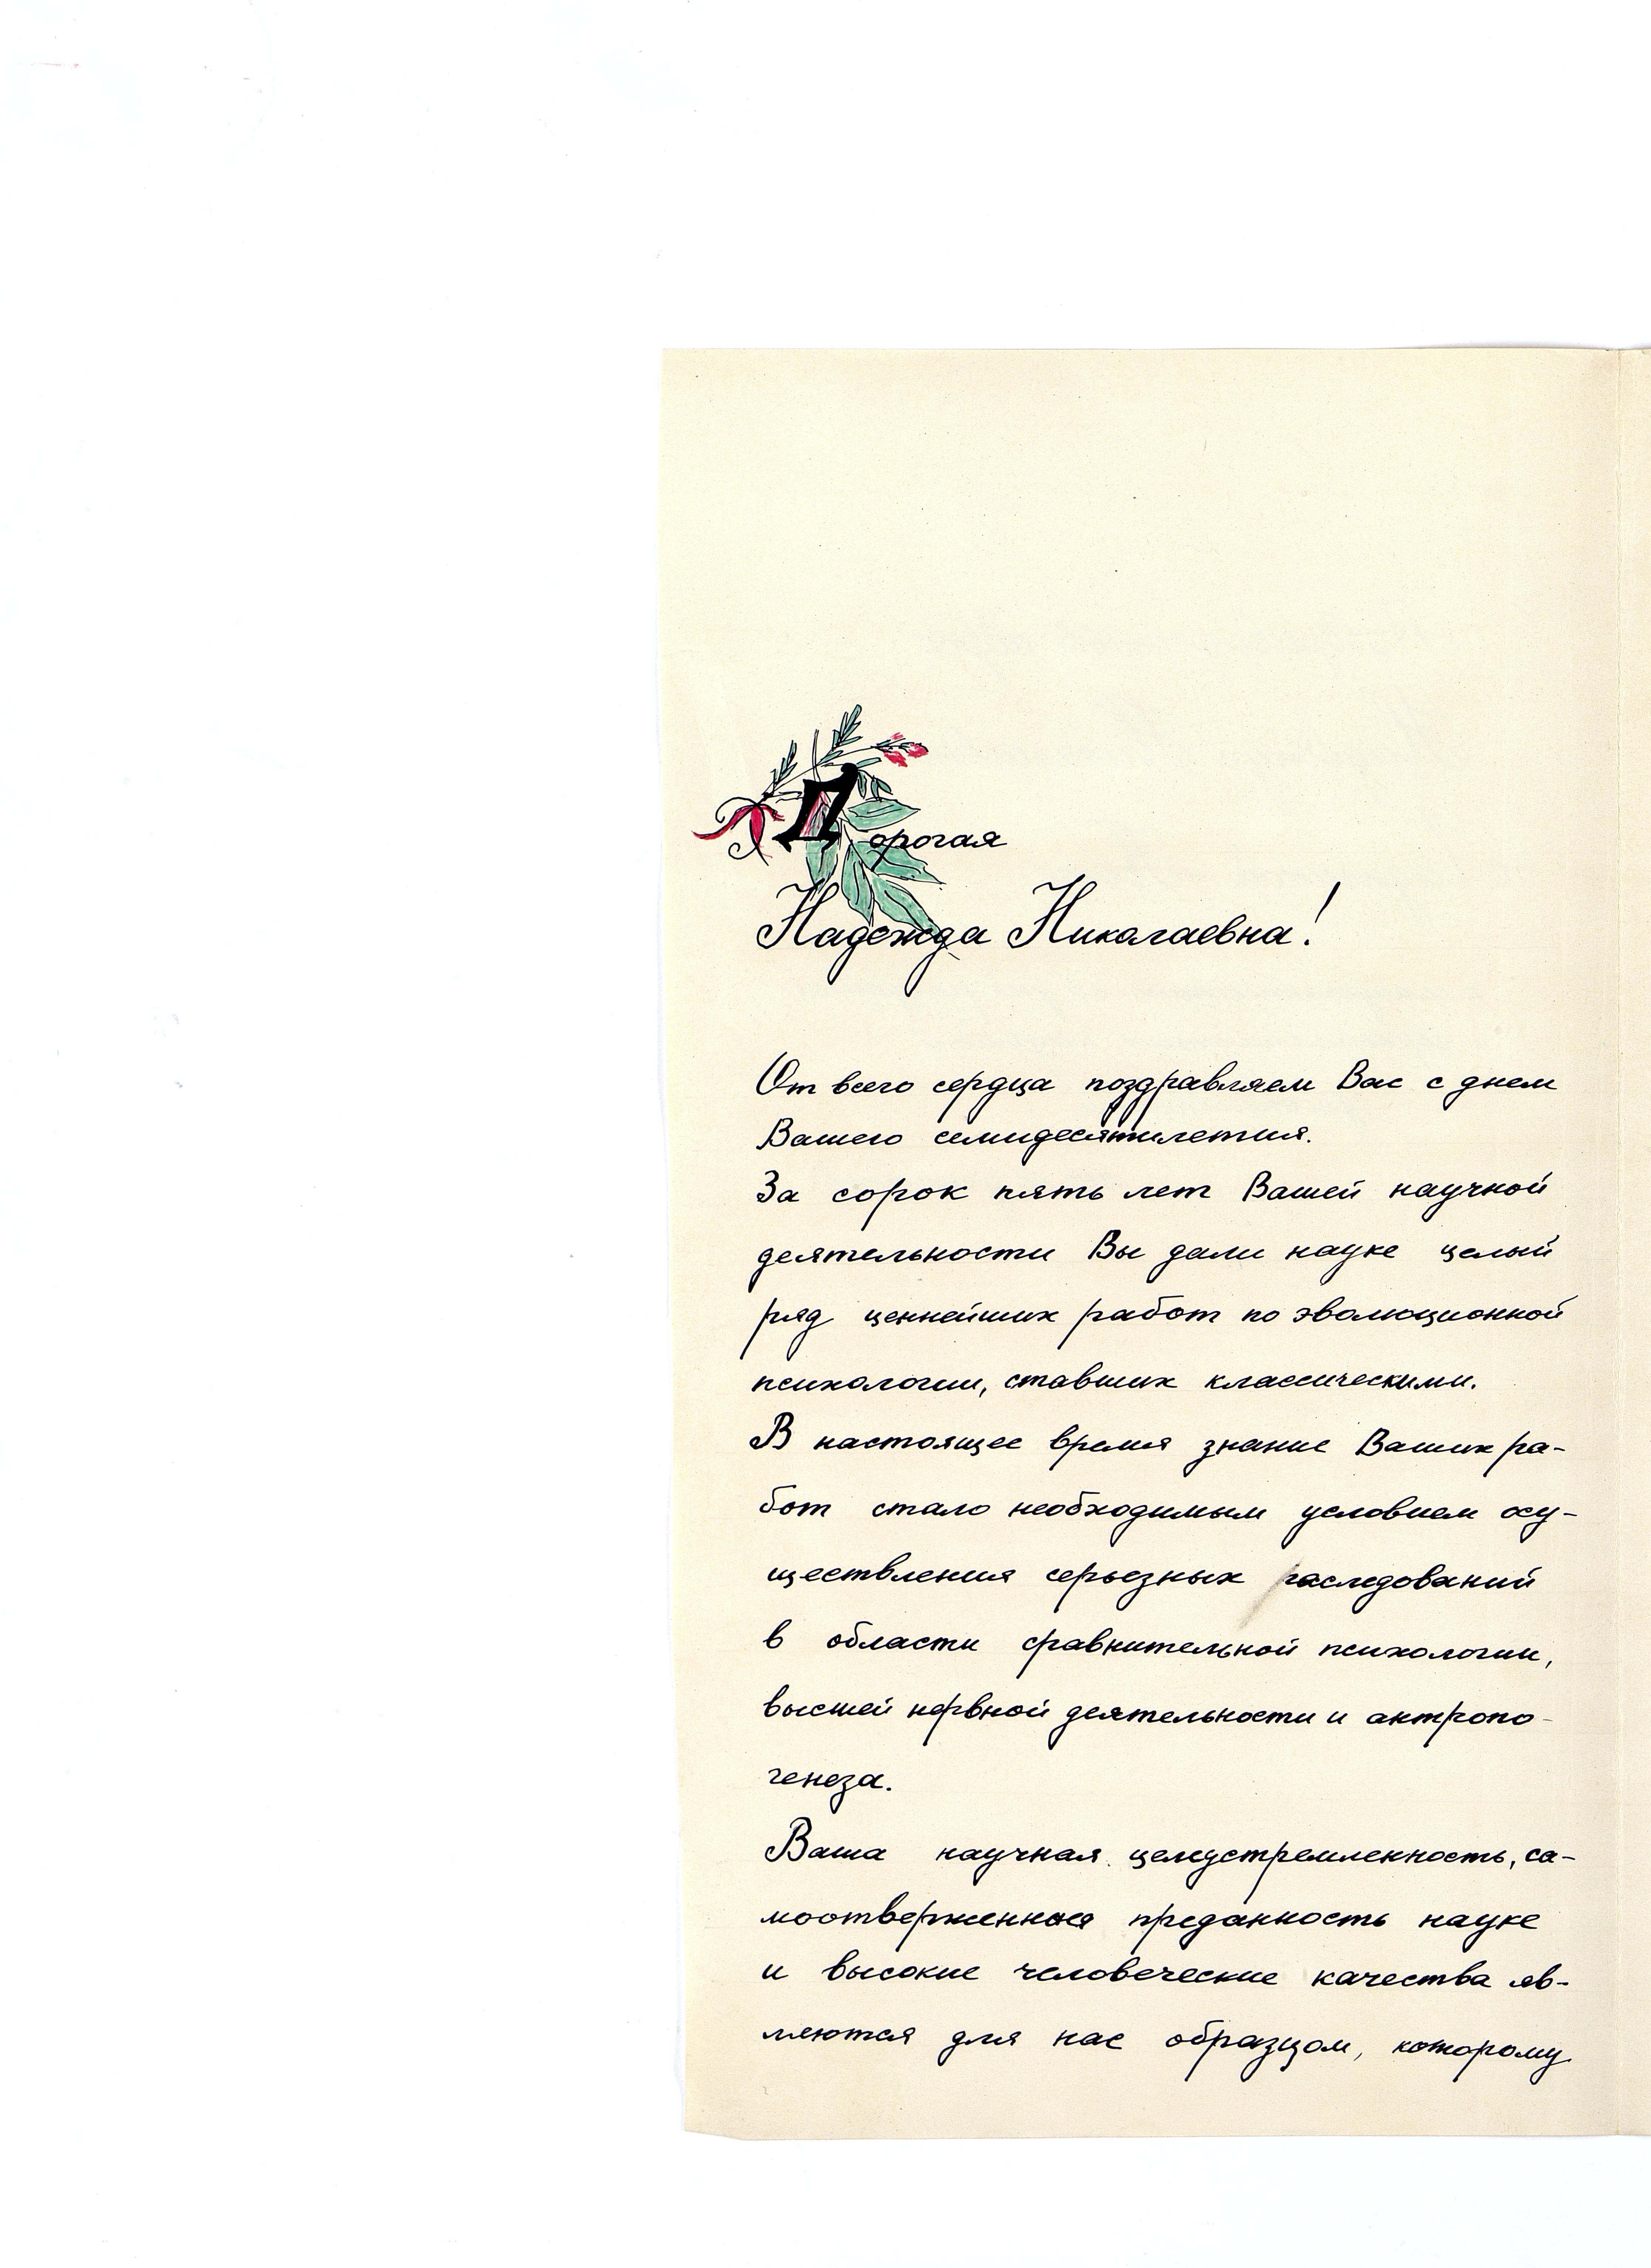 Дорогая
Надежда Николаевна!
От всего сердца поздравляем Вас с днем
Вашего семидесятилетия.
За сорок пять лет Вашей научной
деятельности Вы дали науке целый
ряд ценнейших работ по эволюционной
психологии, ставших классическими.
В настоящее время знание Ваших ра-
бот стало необходимым условием осу-
ществления серьезных исследований
в области сравнительной психологии,
высшей нервной деятельности и антропо-
генеза.
Ваша научная целеустремленность, са-
моотверженная преданность науке
и высокие человеческие качества яв-
ляются для нас образцом, которому